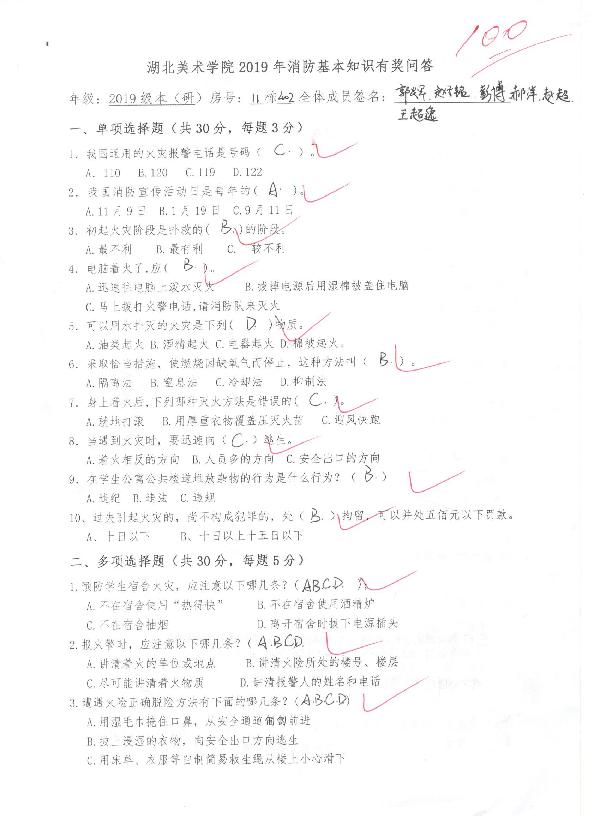 100
湖北美术学院2019年消防基本知识有奖问答
年级：2019级本（研）房号：11栋402全体成员签名：
王超逸
一、单项选择题（共30分，每题3分）
1、我国通用的火灾报警电话是号码（ C. ）。
A. 110 B.120 C.119 D.122
2、我国消防宣传活动日是每年的（ A. ）。
A.11月9日 B.1月19日 C.9月11日
3、初起火灾阶段是扑救的（ B. ）的阶段。
A.最不利 B.最有利 C. 较不利
4、电脑着火了,应（ B. ）。
A.迅速往电脑上泼水灭火 B.拔掉电源后用湿棉被盖住电脑
C.马上拨打火警电话,请消防队来灭火
5、可以用水扑灭的火灾是下列（ D ）物质。
A.油类起火 B.酒精起火 C.电器起火 D.棉被起火。
6、采取恰当措施，使燃烧因缺氧气而停止，这种方法叫（ B. ）。
A.隔离法 B.窒息法 C.冷却法 D.抑制法
7、身上着火后,下列哪种灭火方法是错误的（ C. ）。
A.就地打滚 B.用厚重衣物覆盖压灭火苗 C.迎风快跑
8、当遇到火灾时，要迅速向（ C. ）逃生。
A.着火相反的方向 B.人员多的方向 C.安全出口的方向
9、在学生公寓公共楼道堆放杂物的行为是什么行为？（ B. ）
A.违纪 B.违法 C.违规
10、过失引起火灾的，尚不构成犯罪的，处（ B. ）拘留，可以并处五佰元以下罚款。
A、十日以下 B、十日以上十五日以下
二、多项选择题（共30分，每题5分）
1.预防学生宿舍火灾，应注意以下哪几条？（ABCD ）。
A.不在宿舍使用“热得快” B.不在宿舍使用酒精炉
C.不在宿舍抽烟 D.离开宿舍时拔下电源插头
2.报火警时，应注意以下哪几条？（A.BCD.
A.讲清着火的单位或地点 B.讲清火险所处的楼号、楼层
C.尽可能讲清着火物质 D.讲清报警人的姓名和电话
3.遭遇火险正确脱险方法有下面的哪几条？（ABCD）
A.用湿毛巾捂住口鼻，从安全通道匍匐前进
B.披上浸湿的衣物，向安全出口方向逃生
C.用床单、衣服等自制简易救生绳从楼上小心滑下